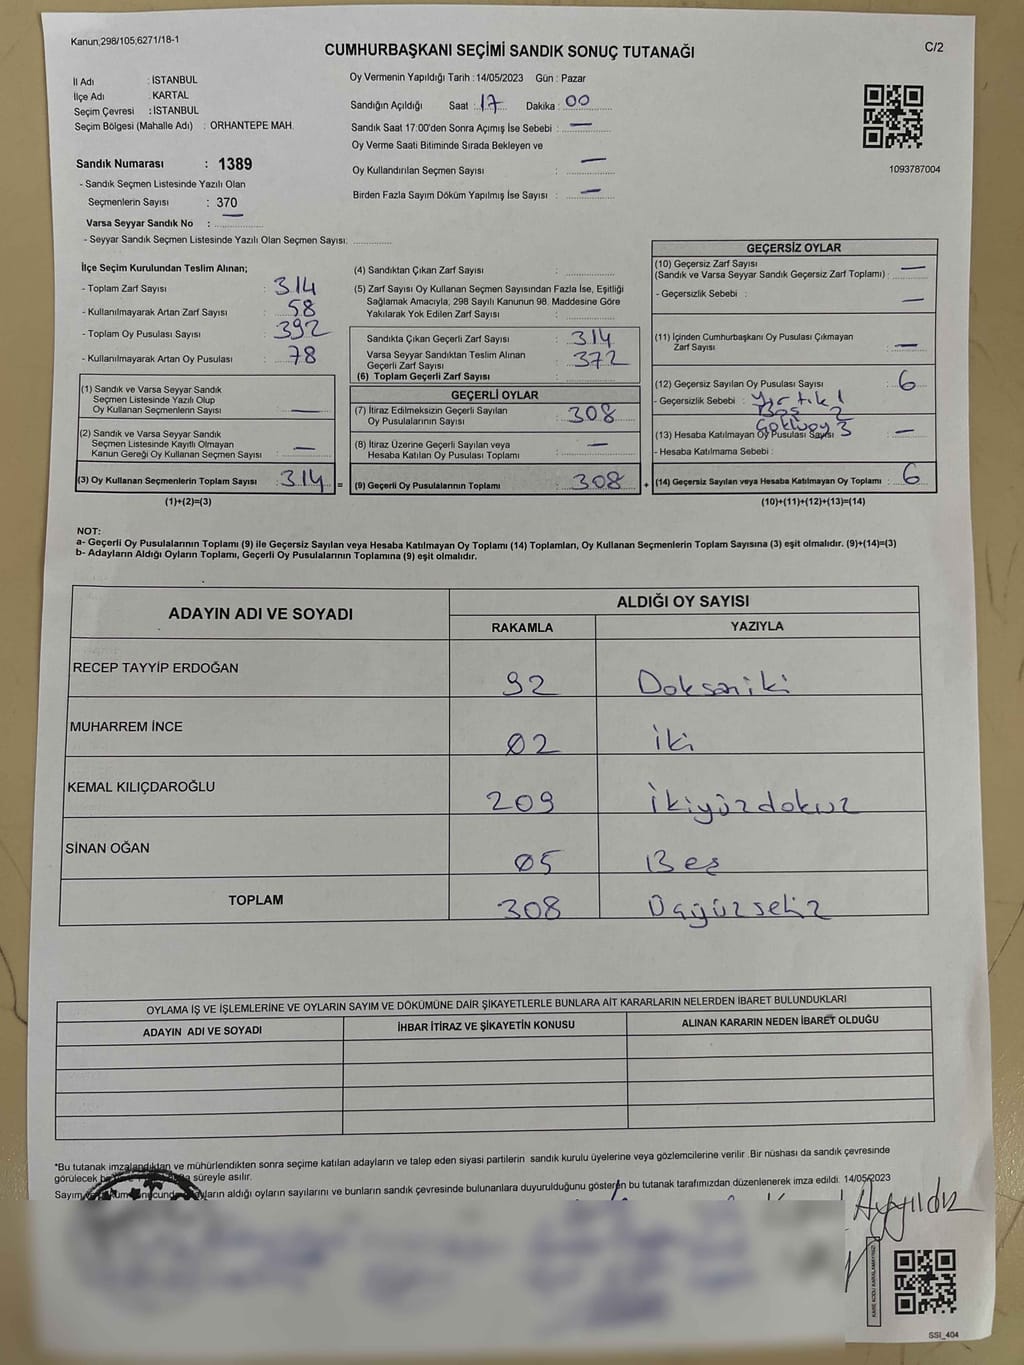 Kanun,298/105,6271/18-1
CUMHURBAŞKANI SEÇİMİ SANDIK SONUÇ TUTANAĞI
C/2
İl Adı : İSTANBUL
İlçe Adı : KARTAL
Seçim Çevresi : İSTANBUL
Seçim Bölgesi (Mahalle Adı) : ORHANTEPE MAH.
Oy Vermenin Yapıldığı Tarih : 14/05/2023 Gün : Pazar
Sandığın Açıldığı Saat : 17 Dakika : 00
Sandık Saat 17:00'den Sonra Açımış İse Sebebi : —
Oy Verme Saati Bitiminde Sırada Bekleyen ve
Oy Kullandırılan Seçmen Sayısı : —
Birden Fazla Sayım Döküm Yapılmış İse Sayısı : —
1093787004
Sandık Numarası : 1389
- Sandık Seçmen Listesinde Yazılı Olan
Seçmenlerin Sayısı : 370
Varsa Seyyar Sandık No : —
- Seyyar Sandık Seçmen Listesinde Yazılı Olan Seçmen Sayısı:
İlçe Seçim Kurulundan Teslim Alınan;
- Toplam Zarf Sayısı : 314
- Kullanılmayarak Artan Zarf Sayısı : 58
- Toplam Oy Pusulası Sayısı : 392
- Kullanılmayarak Artan Oy Pusulası : 78
(1) Sandık ve Varsa Seyyar Sandık
Seçmen Listesinde Yazılı Olup
Oy Kullanan Seçmenlerin Sayısı : —
(2) Sandık ve Varsa Seyyar Sandık
Seçmen Listesinde Kayıtlı Olmayan
Kanun Gereği Oy Kullanan Seçmen Sayısı : —
(3) Oy Kullanan Seçmenlerin Toplam Sayısı : 314 =
(1)+(2)=(3)
(4) Sandıktan Çıkan Zarf Sayısı :
(5) Zarf Sayısı Oy Kullanan Seçmen Sayısından Fazla İse, Eşitliği
Sağlamak Amacıyla, 298 Sayılı Kanunun 98. Maddesine Göre
Yakılarak Yok Edilen Zarf Sayısı :
Sandıkta Çıkan Geçerli Zarf Sayısı : 314
Varsa Seyyar Sandıktan Teslim Alınan
Geçerli Zarf Sayısı : 372
(6) Toplam Geçerli Zarf Sayısı :
GEÇERLİ OYLAR
(7) İtiraz Edilmeksizin Geçerli Sayılan
Oy Pusulalarının Sayısı : 308
(8) İtiraz Üzerine Geçerli Sayılan veya
Hesaba Katılan Oy Pusulası Toplamı : —
(9) Geçerli Oy Pusulalarının Toplamı : 308 +
GEÇERSİZ OYLAR
(10) Geçersiz Zarf Sayısı
(Sandık ve Varsa Seyyar Sandık Geçersiz Zarf Toplamı) : —
- Geçersizlik Sebebi : —
(11) İçinden Cumhurbaşkanı Oy Pusulası Çıkmayan
Zarf Sayısı : —
(12) Geçersiz Sayılan Oy Pusulası Sayısı : 6
- Geçersizlik Sebebi : Yırtık 1
Boş 2
3
(13) Hesaba Katılmayan Oy Pusulası Sayısı : —
- Hesaba Katılmama Sebebi :
(14) Geçersiz Sayılan veya Hesaba Katılmayan Oy Toplamı : 6
(10)+(11)+(12)+(13)=(14)
NOT:
a- Geçerli Oy Pusulalarının Toplamı (9) ile Geçersiz Sayılan veya Hesaba Katılmayan Oy Toplamı (14) Toplamları, Oy Kullanan Seçmenlerin Toplam Sayısına (3) eşit olmalıdır. (9)+(14)=(3)
b- Adayların Aldığı Oyların Toplamı, Geçerli Oy Pusulalarının Toplamına (9) eşit olmalıdır.
ADAYIN ADI VE SOYADI
ALDIĞI OY SAYISI
RAKAMLA YAZIYLA
RECEP TAYYİP ERDOĞAN 92 Doksaniki
MUHARREM İNCE 02 İki
KEMAL KILIÇDAROĞLU 209 İkiyüzdokuz
SİNAN OĞAN 05 Beş
TOPLAM 308 Üçyüzsekiz
OYLAMA İŞ VE İŞLEMLERİNE VE OYLARIN SAYIM VE DÖKÜMÜNE DAİR ŞİKAYETLERLE BUNLARA AİT KARARLARIN NELERDEN İBARET BULUNDUKLARI
ADAYIN ADI VE SOYADI İHBAR İTİRAZ VE ŞİKAYETİN KONUSU ALINAN KARARIN NEDEN İBARET OLDUĞU
*Bu tutanak imzalandıktan ve mühürlendikten sonra seçime katılan adayların ve talep eden siyasi partilerin sandık kurulu üyelerine veya gözlemcilerine verilir .Bir nüshası da sandık çevresinde
görülecek süreyle asılır.
Sayım ve döküm sonucunda adayların aldığı oyların sayılarını ve bunların sandık çevresinde bulunanlara duyurulduğunu gösteren bu tutanak tarafımızdan düzenlenerek imza edildi. 14/05/2023
Ayyıldız
KARE KODU KARALAMAYINIZ!
SSI_404